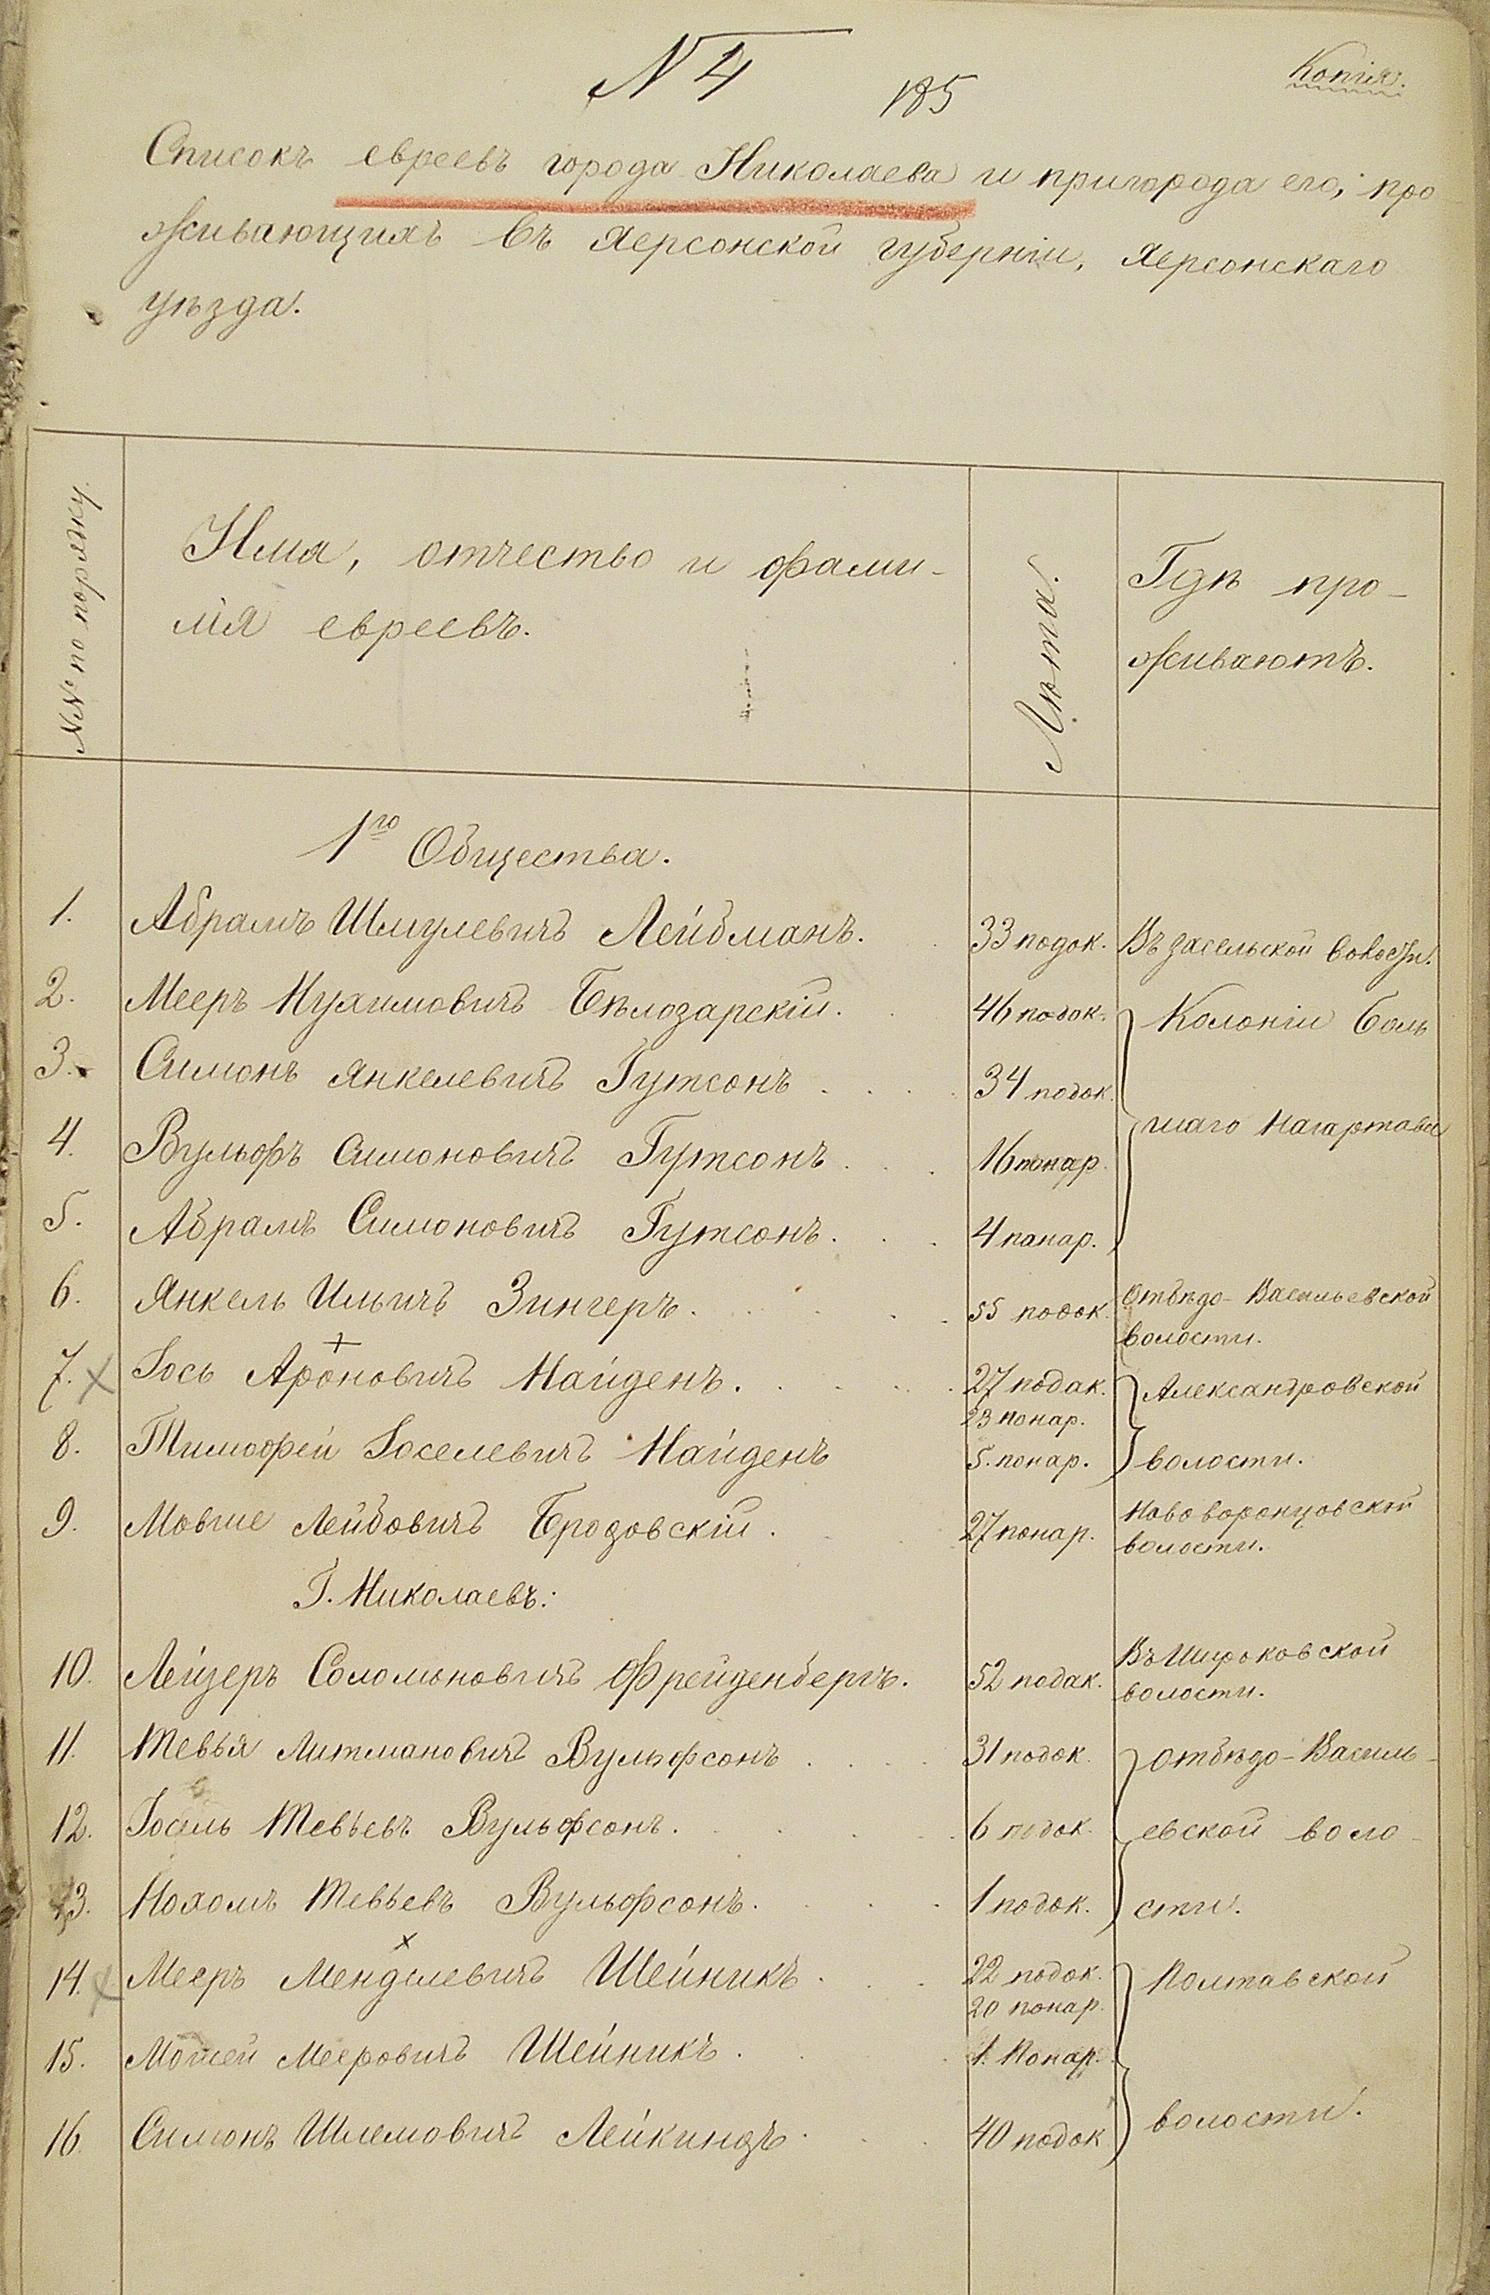 N 4
185
Копія.
Списокъ евреевъ города Николаева и пригорода его, про
живающихъ въ Херсонской губерніи, Херсонскаго
уѣзда.
№№ по порядку.
Имя, отчество и фами-
лія евреевъ.
Лѣта.
Гдѣ про-
живаютъ.
1го Общества.
1. Абрамъ Шмулевичъ Лейбманъ. 33 подок. Въ засельской волости.
2. Мееръ Нухимовичъ Бѣлозарскій. 46 подок. Колоніи Боль
3. Симонъ Янкелевичъ Гутсонъ 34 подок.
шаго Нагартава
4. Вульфъ Симоновичъ Гутсонъ 16 понар.
5. Абрамъ Симоновичъ Гутсонъ. 4 панар.
6. Янкель Ильичъ Зингеръ. 55 подок. Отбѣдо-Васильевской
волости.
7. Іось Ароновичъ Найденъ. 27 подак. Александровской
23 понар.
8. Тимофей Іоселевичъ Найденъ 5. понар. волости.
9. Мовше Лейбовичъ Бродовскій. 27 понар. Нововоронцовской
волости.
Г. Николаевъ:
10. Лейзеръ Соломоновичъ Фрейденбергъ. 52 подак. Въ Широковской
волости.
11. Тевья Литмановичъ Вульфсонъ 31 подок. Отбѣдо-Василь-
12. Іосиль Тевьевъ Вульфсонъ. 6 подок. евской воло-
13. Нохомъ Тевьевъ Вульфсонъ. 1 подок. сти.
14. Мееръ Менделевичъ Шейникъ. 22 подок. Полтавской
20 понар.
15. Мошей Мееровичъ Шейникъ. 1. Понар.
16. Симонъ Шлемовичъ Лейкиндъ. 40 подок волости.